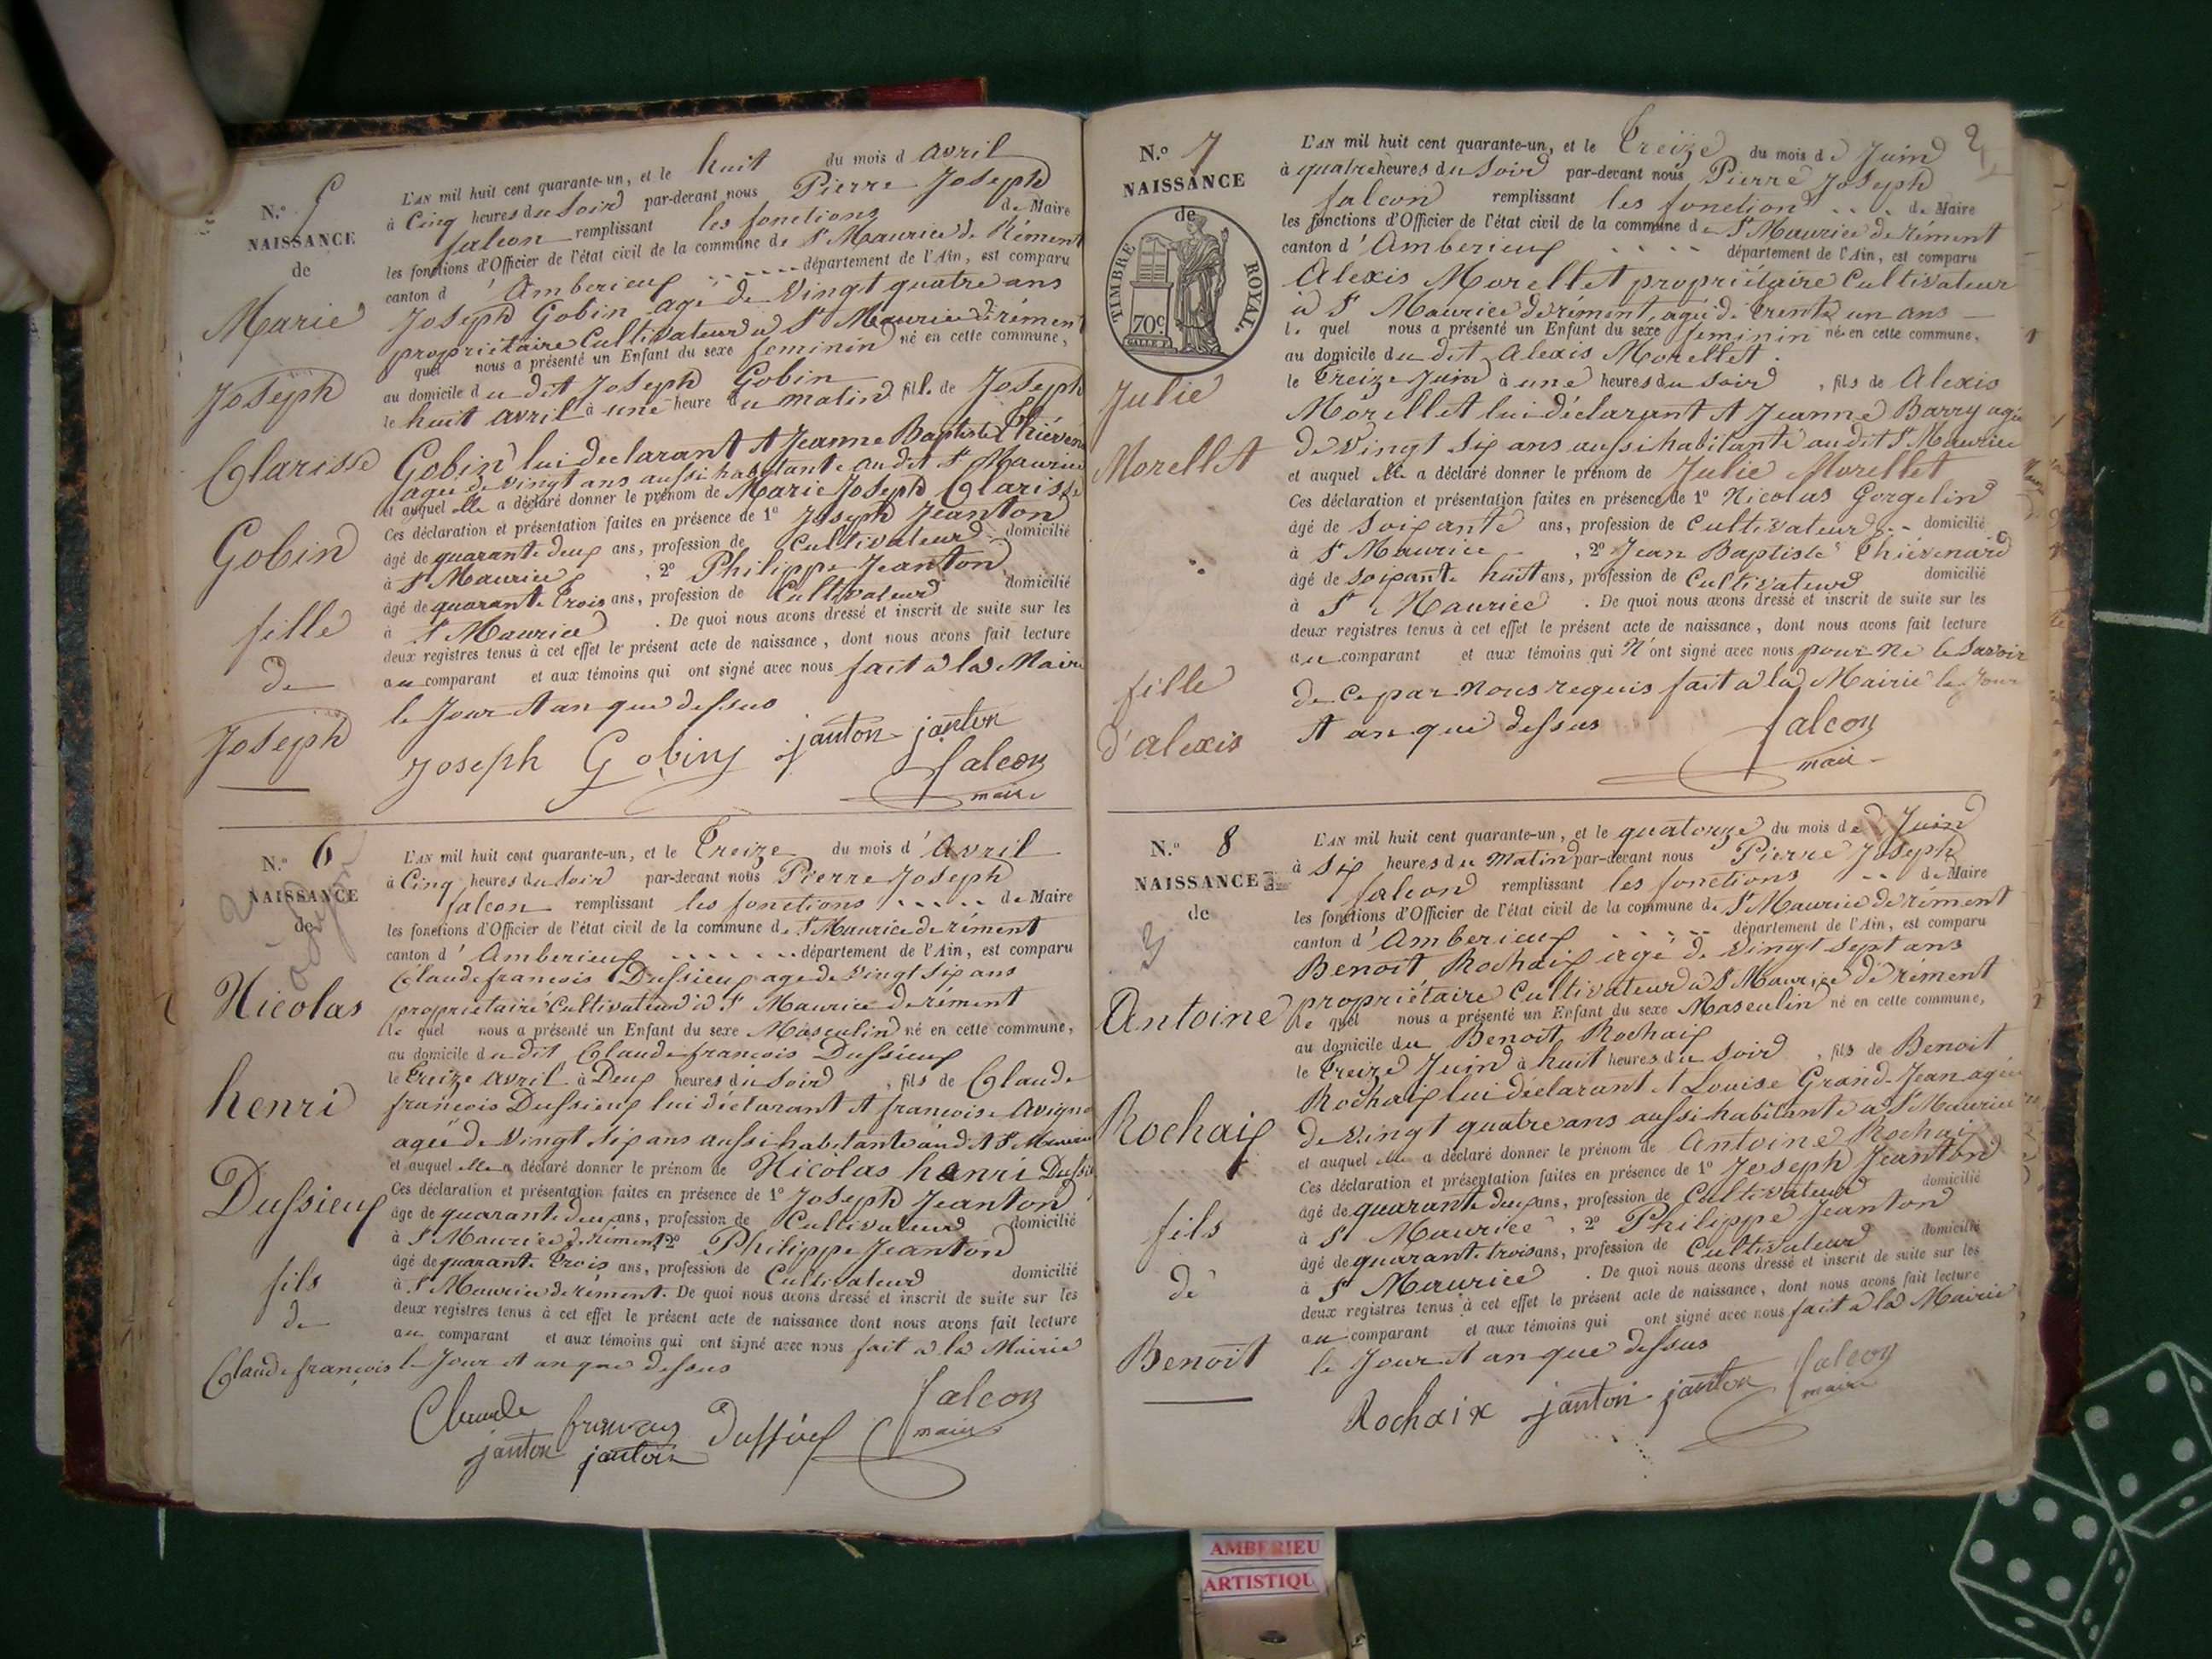 N.º 5
NAISSANCE
de
Marie
Joseph
Clarisse
Gobin
fille
de
Joseph
L'AN mil huit cent quarante-un, et le huit du mois d avril
à Cinq heures du Soir par-devant nous Pierre Joseph
falcon remplissant les fonctions de Maire
les fonctions d'Officier de l'état civil de la commune de St Maurice de Rément
canton d'Amberieux département de l'Ain, est comparu
Joseph Gobin agé de vingt quatre ans
propriétaire Cultivateur a St Maurice de rément
quel nous a présenté un Enfant du sexe feminin né en cette commune,
au domicile du dit Joseph Gobin
le huit avril à une heure du matin fil. de Joseph
Gobin lui declarant et Jeanne Baptiste
agée de vingt ans aussi habitante au dit St Maurice
et auquel elle a déclaré donner le prénom de Marie Joseph Clarisse
Ces déclaration et présentation faites en présence de 1º Joseph Jeanton
âgé de quarante deux ans, profession de Cultivateur domicilié
à St Maurice, 2º Philippe Jeanton
âgé de quarante trois ans, profession de Cultivateur domicilié
à St Maurice. De quoi nous avons dressé et inscrit de suite sur les
deux registres tenus à cet effet le présent acte de naissance, dont nous avons fait lecture
au comparant et aux témoins qui ont signé avec nous fait a la Mairie
le Jour et an que dessus
Joseph Gobin janton janton
falcon
maire
N.º 6
NAISSANCE
de
Nicolas
henri
Dussieux
fils
de
Claude françois
L'AN mil huit cent quarante-un, et le treize du mois d'avril
à Cinq heures du Soir par-devant nous Pierre Joseph
falcon remplissant les fonctions de Maire
les fonctions d'Officier de l'état civil de la commune de St Maurice de rément
canton d'Amberieux département de l'Ain, est comparu
Claude françois Dussieux age de vingt six ans
propriétaire Cultivateur à St Maurice de rément
le quel nous a présenté un Enfant du sexe Masculin né en cette commune,
au domicile du dit Claude françois Dussieux
le treize avril à Deux heures du Soir, fils de Claude
françois Dussieux lui déclarant et françoise
agée de vingt six ans aussi habitante au dit St Maurice
et auquel elle a déclaré donner le prénom de Nicolas henri
Ces déclaration et présentation faites en présence de 1º Joseph Jeanton
âgé de quarante deux ans, profession de Cultivateur domicilié
à St Maurice de rément 2º Philippe Jeanton
âgé de quarante trois ans, profession de Cultivateur domicilié
à St Maurice de rément. De quoi nous avons dressé et inscrit de suite sur les
deux registres tenus à cet effet le présent acte de naissance dont nous avons fait lecture
au comparant et aux témoins qui ont signé avec nous fait a la Mairie
le Jour et an que dessus
Claude francois Dussieux falcon
janton janton maire
N.º 7
NAISSANCE
de
TIMBRE ROYAL.
70c
Julie
Morellet
fille
d'alexis
2
L'AN mil huit cent quarante-un, et le treize du mois de Juin
à quatre heures du Soir par-devant nous Pierre Joseph
falcon remplissant les fonction de Maire
les fonctions d'Officier de l'état civil de la commune de St Maurice de rément
canton d'Amberieux département de l'Ain, est comparu
Alexis Morellet propriétaire Cultivateur
à St Maurice de rément, agé de trente un ans
le quel nous a présenté un Enfant du sexe feminin née en cette commune,
au domicile du dit Alexis Morellet.
le treize Juin à une heures du Soir, fils de Alexis
Morellet lui déclarant et Jeanne Barry agée
de vingt six ans aussi habitante au dit St Maurice
et auquel elle a déclaré donner le prénom de Julie Morellet
Ces déclaration et présentation faites en présence de 1º Nicolas Gorgelin
âgé de Soixante ans, profession de Cultivateur domicilié
à St Maurice, 2º Jean Baptiste Thiévenard
âgé de Soixante huit ans, profession de Cultivateur domicilié
à St Maurice. De quoi nous avons dressé et inscrit de suite sur les
deux registres tenus à cet effet le présent acte de naissance, dont nous avons fait lecture
au comparant et aux témoins qui N'ont signé avec nous pour Ne le Savoir
de ce par Nous requis fait a la Mairie les Jour
et an que dessus
falcon
maire
N.º 8
NAISSANCE
de
3
Antoine
Rochaix
fils
de
Benoit
L'AN mil huit cent quarante-un, et le quatorze du mois de Juin
à Six heures du Matin par-devant nous Pierre Joseph
falcon remplissant les fonctions de Maire
les fonctions d'Officier de l'état civil de la commune de St Maurice de rément
canton d'Amberieux département de l'Ain, est comparu
Benoit Rochaix agé de vingt Sept ans
propriétaire Cultivateur a St Maurice de rément
le quel nous a présenté un Enfant du sexe Masculin né en cette commune,
au domicile du Benoit Rochaix
le treize Juin à huit heures du Soir, fils de Benoit
Rochaix lui déclarant et Louise Grand-Jean agée
de vingt quatre ans aussi habitante a St Maurice
et auquel elle a déclaré donner le prénom de Antoine Rochaix
Ces déclaration et présentation faites en présence de 1º Joseph Jeanton
âgé de quarante deux ans, profession de Cultivateur domicilié
à St Maurice, 2º Philippe Jeanton
âgé de quarante trois ans, profession de Cultivateur domicilié
à St Maurice. De quoi nous avons dressé et inscrit de suite sur les
deux registres tenus à cet effet le présent acte de naissance, dont nous avons fait lecture
au comparant et aux témoins qui ont signé avec nous fait a la Mairie
le Jour et an que dessus
Rochaix janton janton falcon
maire
AMBERIEU
ARTISTIQU